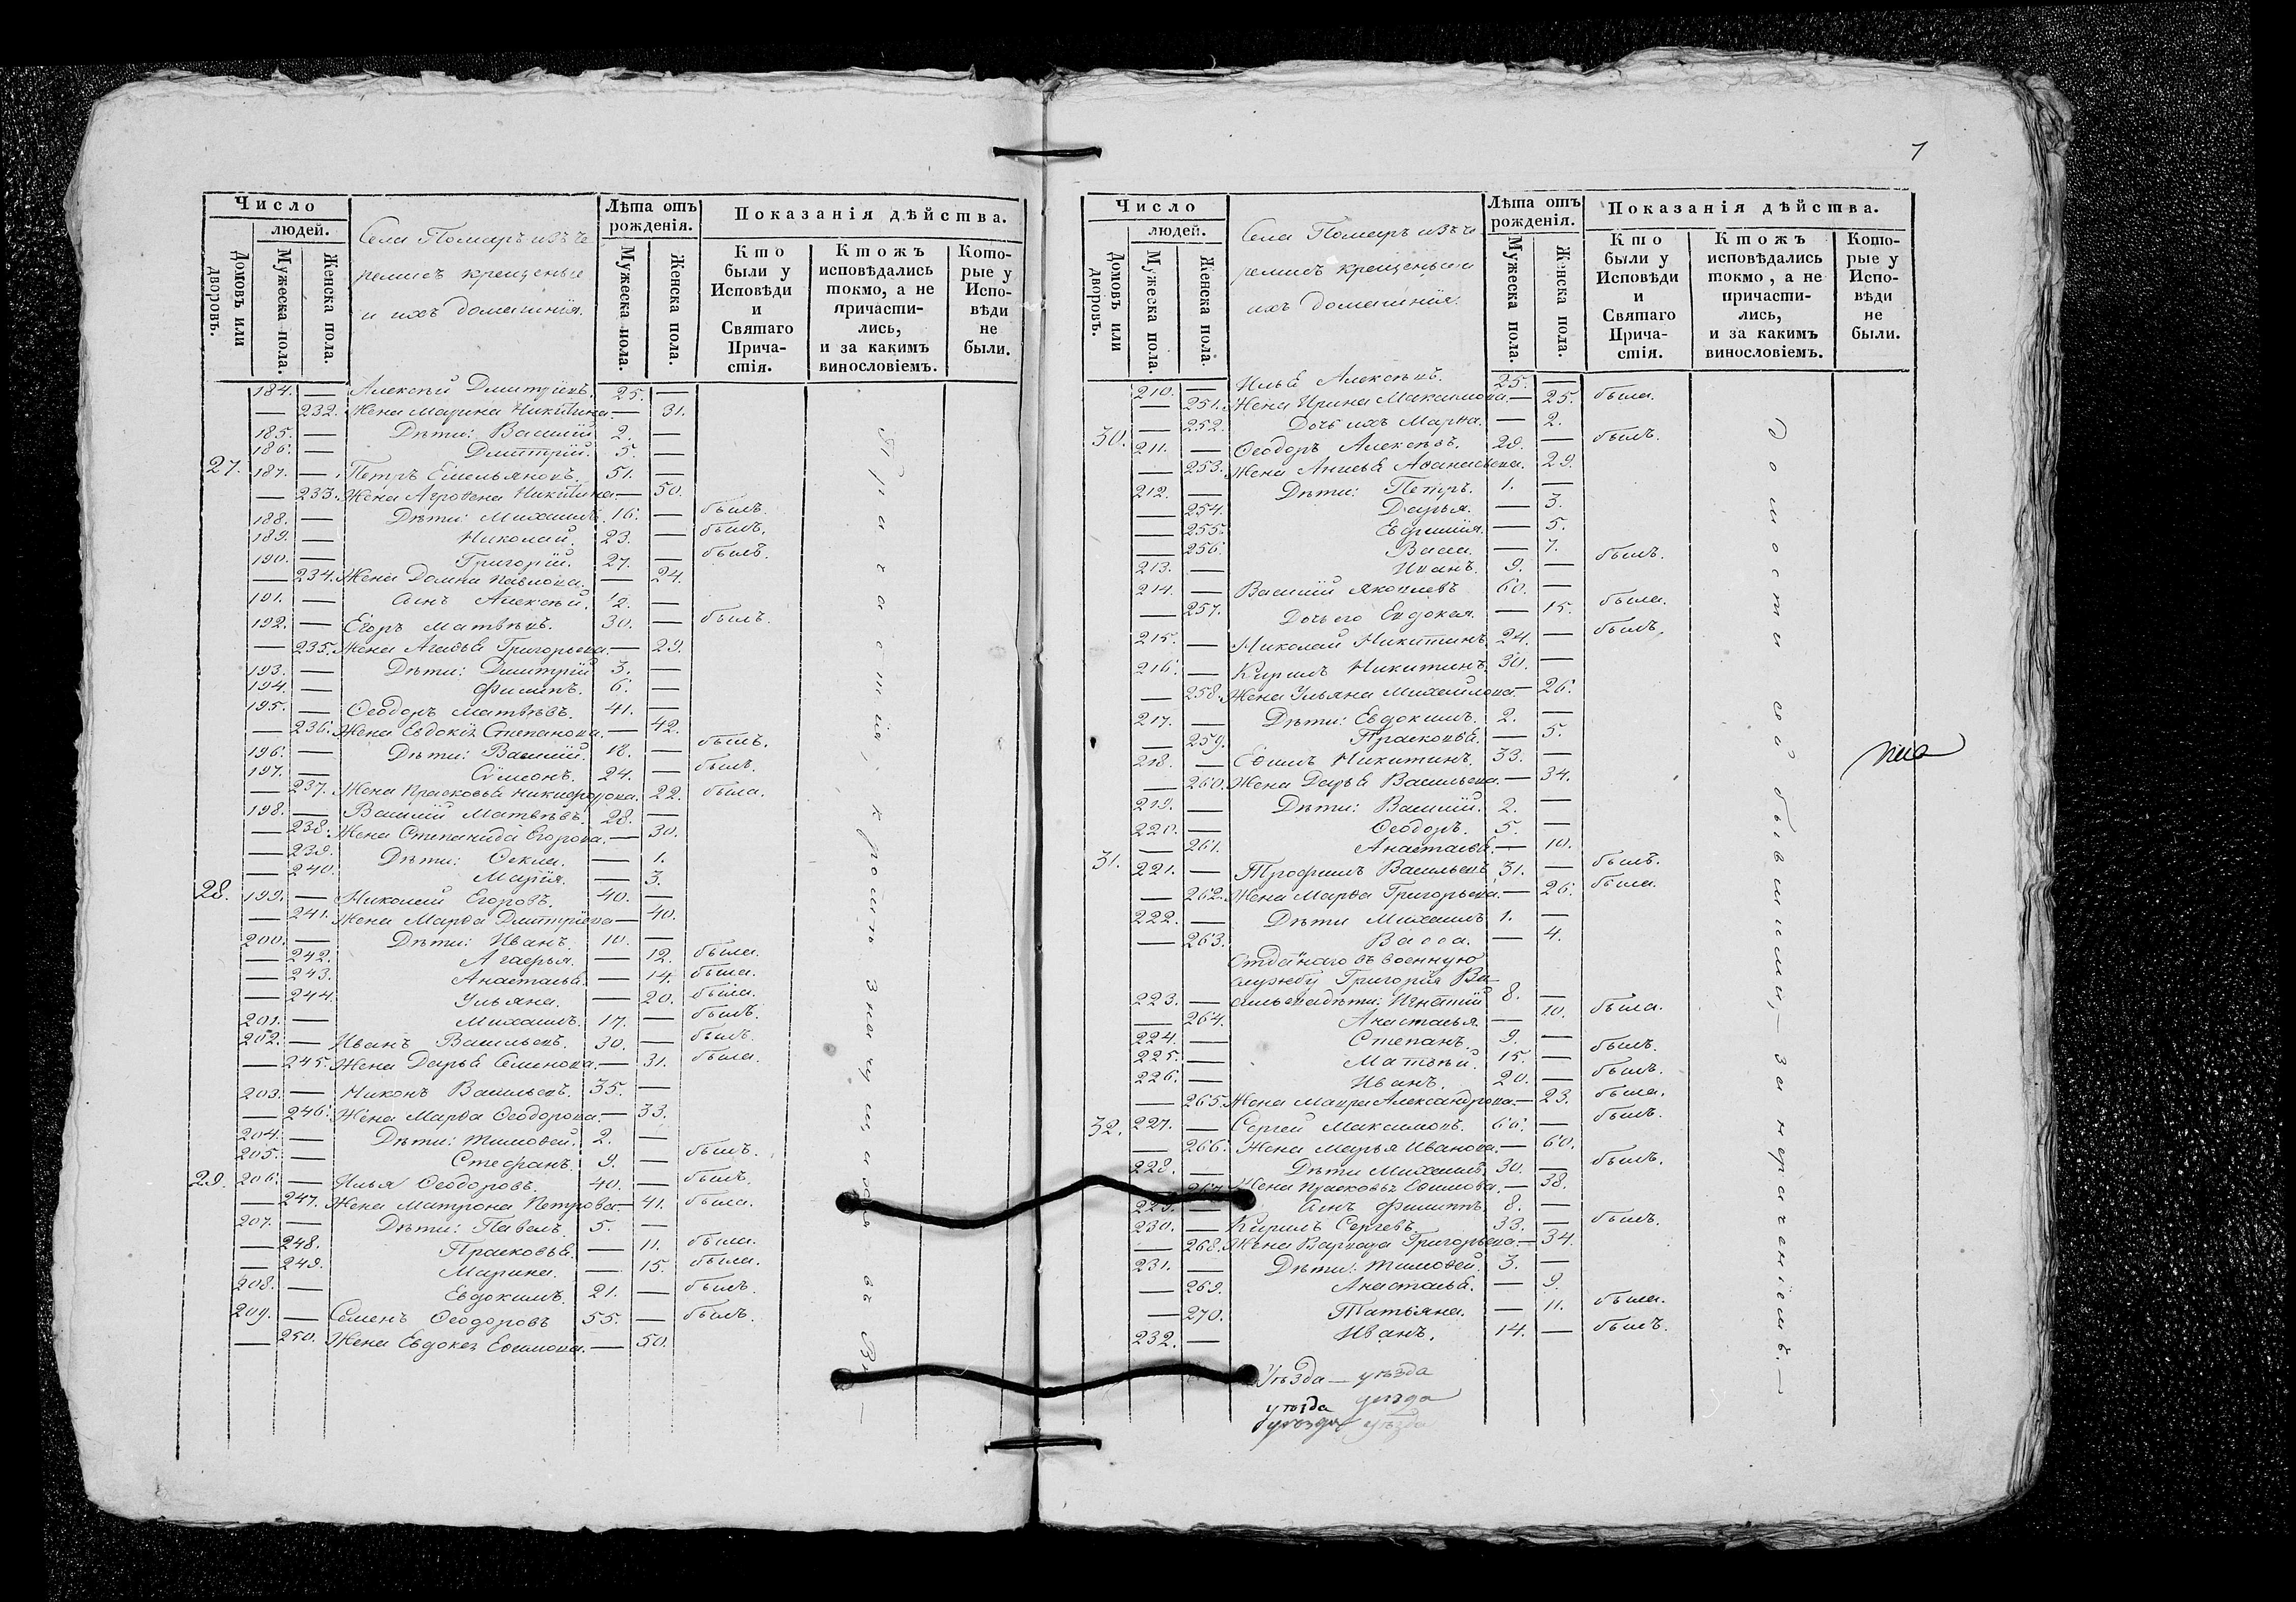 Число
людей.
Домовъ или дворовъ.
Мужеска пола.
Женска пола.
Села Помаръ изъ че
ремисъ крещеные
и ихъ домашнія.
Лѣта отъ рожденія.
Мужеска пола.
Женска пола.
Показанія дѣйства.
Кто были у Исповѣди и Святаго Прича- стія.
Ктожъ исповѣдались токмо, а не причасти- лись, и за какимъ винословіемъ.
Кото- рые у Испо- вѣди не были.
184. — Алексѣй Дмитріевъ. 25. —
— 232. Жена Марина Никитина. — 31.
185. — Дѣти: Василій 2. —
186. — Дмитрій. 5. —
27. 187. — Петръ Емельяновъ. 51. —
— 233. Жена Агрофена Никитина — 50.
188. — Дѣти: Михаилъ. 16. — былъ.
189. — Николай. 23. — былъ.
190. — Григорій. 27. — былъ.
— 234. Жена Домна Павлова. — 24.
191. — Сынъ Алексѣй. 12. —
192. — Егоръ Матвѣевъ. 30. — былъ.
— 235. Жена Агафья Григорьева. — 29.
193. — Дѣти: Дмитрій 3. —
194. — Филипъ. 6. —
195. — Ѳеодоръ Матвѣевъ. 41. —
— 236. Жена Евдокія Степанова. — 42.
196. — Дѣти: Василій. 18. — былъ.
197. — Сѵмеонъ. 24. — былъ.
— 237. Жена Прасковья Никифорова. 22. была.
198. — Василій Матвѣевъ. 28. —
— 238. Жена Степанида Егорова. — 30.
— 239. Дѣти: Ѳекла. — 1.
— 240. Марія. — 3.
28. 199. — Николай Егоровъ. 40. —
— 241. Жена Марѳа Дмитріева — 40.
200. — Дѣти: Иванъ. 10. —
— 242. Агафья. — 12. была.
— 243. Анастасья. — 14. была.
— 244. Ульяна. — 20. была.
201. — Михаилъ. 17. — былъ.
202. — Иванъ Васильевъ. 30. — былъ.
— 245. Жена Дарья Семенова. — 31. была.
203. — Никонъ Васильевъ. 35. —
— 246. Жена Марѳа Ѳеодорова. — 33.
204. — Дѣти: Тимоѳей. 2. —
205. — Стефанъ. 9. — былъ.
29. 206. — Илья Ѳеодоровъ. 40. — былъ.
— 247. Жена Матрона Петрова — 41. была.
207. — Дѣти: Павелъ. 5. —
— 248. Прасковья. — 11. была.
— 249. Марина. — 15. была.
208. — Евдокимъ. 21. — былъ.
209. — Семенъ Ѳеодоровъ 55. — былъ.
— 250. Жена Евдокея Еѳимова. — 50.
кромѣ
7
Число
людей.
Домовъ или дворовъ.
Мужеска пола.
Женска пола.
Села Помаръ изъ че
ремисъ крещеные и
ихъ домашнія.
Лѣта отъ рожденія.
Мужеска пола.
Женска пола.
Показанія дѣйства.
Кто были у Исповѣди и Святаго Прича- стія.
Ктожъ исповѣдались токмо, а не причасти- лись, и за какимъ винословіемъ.
Кото- рые у Испо- вѣди не были.
210. — Илья Алексѣевъ. 25. —
— 251. Жена Ирина Максимова — 25. была.
— 252. Дочь ихъ Марѳа. — 2.
30. 211. — Ѳеодоръ Алексѣевъ. 29. — былъ.
— 253. Жена Анисья Аѳанасьева. 29.
212. — Дѣти: Петръ. 1. —
— 254. Дарья. — 3.
— 255. Евфимія. — 5.
— 256. Васса. — 7.
213. — Иванъ. 9. — былъ.
214. — Василій Яковлевъ 60. —
— 257. Дочь его Евдокея. — 15. была.
215. — Николай Никитинъ 24. — былъ.
216. — Кирилъ Никитинъ. 30. —
— 258. Жена Ульяна Михаилова — 26.
217. — Дѣти: Евдокимъ. 2. —
— 259. Прасковья. — 5.
218. — Еѳимъ Никитинъ. 33. —
— 260. Жена Дарья Васильева. — 34.
219. — Дѣти: Василій. 2. —
220. — Ѳеодоръ. 5. —
— 261. Анастасья. — 10.
31. 221. — Трофимъ Васильевъ 31. — былъ.
— 262. Жена Марѳа Григорьева. — 26. была.
222. — Дѣти Михаилъ 1. —
— 263. Васса. — 4.
Отданаго въ военную
службу Григорія Ва-
223. — сильева дѣти: Игнатій 8. —
— 264. Анастасья. — 10. была.
224. — Степанъ. 9. —
225. — Матвѣй. 15. — былъ.
226. — Иванъ. 20. — былъ.
— 265. Жена Мавра Александрова — 23. была.
32. 227. — Сергей Максимовъ. 60. — былъ.
— 266. Жена Марья Иванова. — 60.
228. — Дѣти Михаилъ 30. — былъ.
— 267. Жена Прасковья Еѳимова. — 38.
229. — Сынъ Филиппъ. 8. —
230. — Кирилъ Сергеевъ. 33. — былъ.
— 268. Жена Варвара Григорьева. — 34.
231. — Дѣти: Тимоѳей. 3. —
— 269. Анастасья. — 9.
— 270. Татьяна. — 11. была.
232. — Иванъ. 14. — былъ.
бывшими, — за нераченіемъ. —
Уѣзда — уѣзда
уѣзда уѣзда
уѣзда